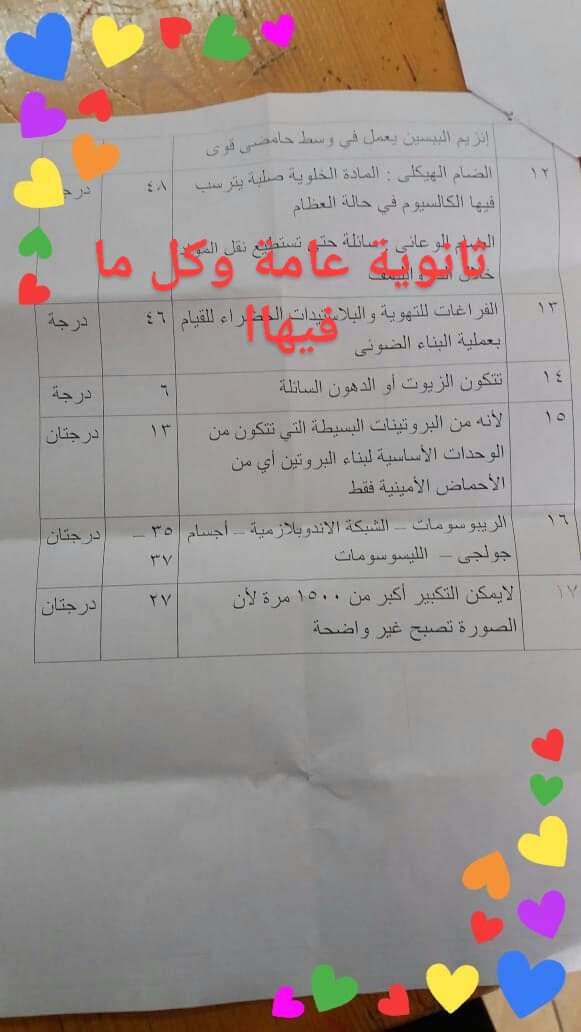 إنزيم الببسين يعمل في وسط حامضى قوى
١٢ الضام الهيكلى : المادة الخلوية صلبة يترسب ٤٨
فيها الكالسيوم في حالة العظام
الضام الوعائى سائلة حتى تستطيع نقل المواد
خلال
ثانوية عامة وكل ما
فيهاا
١٣ الفراغات للتهوية والبلاستيدات الخضراء للقيام ٤٦ درجة
بعملية البناء الضوئى
١٤ تتكون الزيوت أو الدهون السائلة ٦ درجة
١٥ لأنه من البروتينات البسيطة التي تتكون من ١٣ درجتان
الوحدات الأساسية لبناء البروتين أي من
الأحماض الأمينية فقط
١٦ الريبوسومات – الشبكة الاندوبلازمية – أجسام ٣٥ – درجتان
جولجى – الليسوسومات ٣٧
١٧ لايمكن التكبير أكبر من ١٥٠٠ مرة لأن ٢٧ درجتان
الصورة تصبح غير واضحة